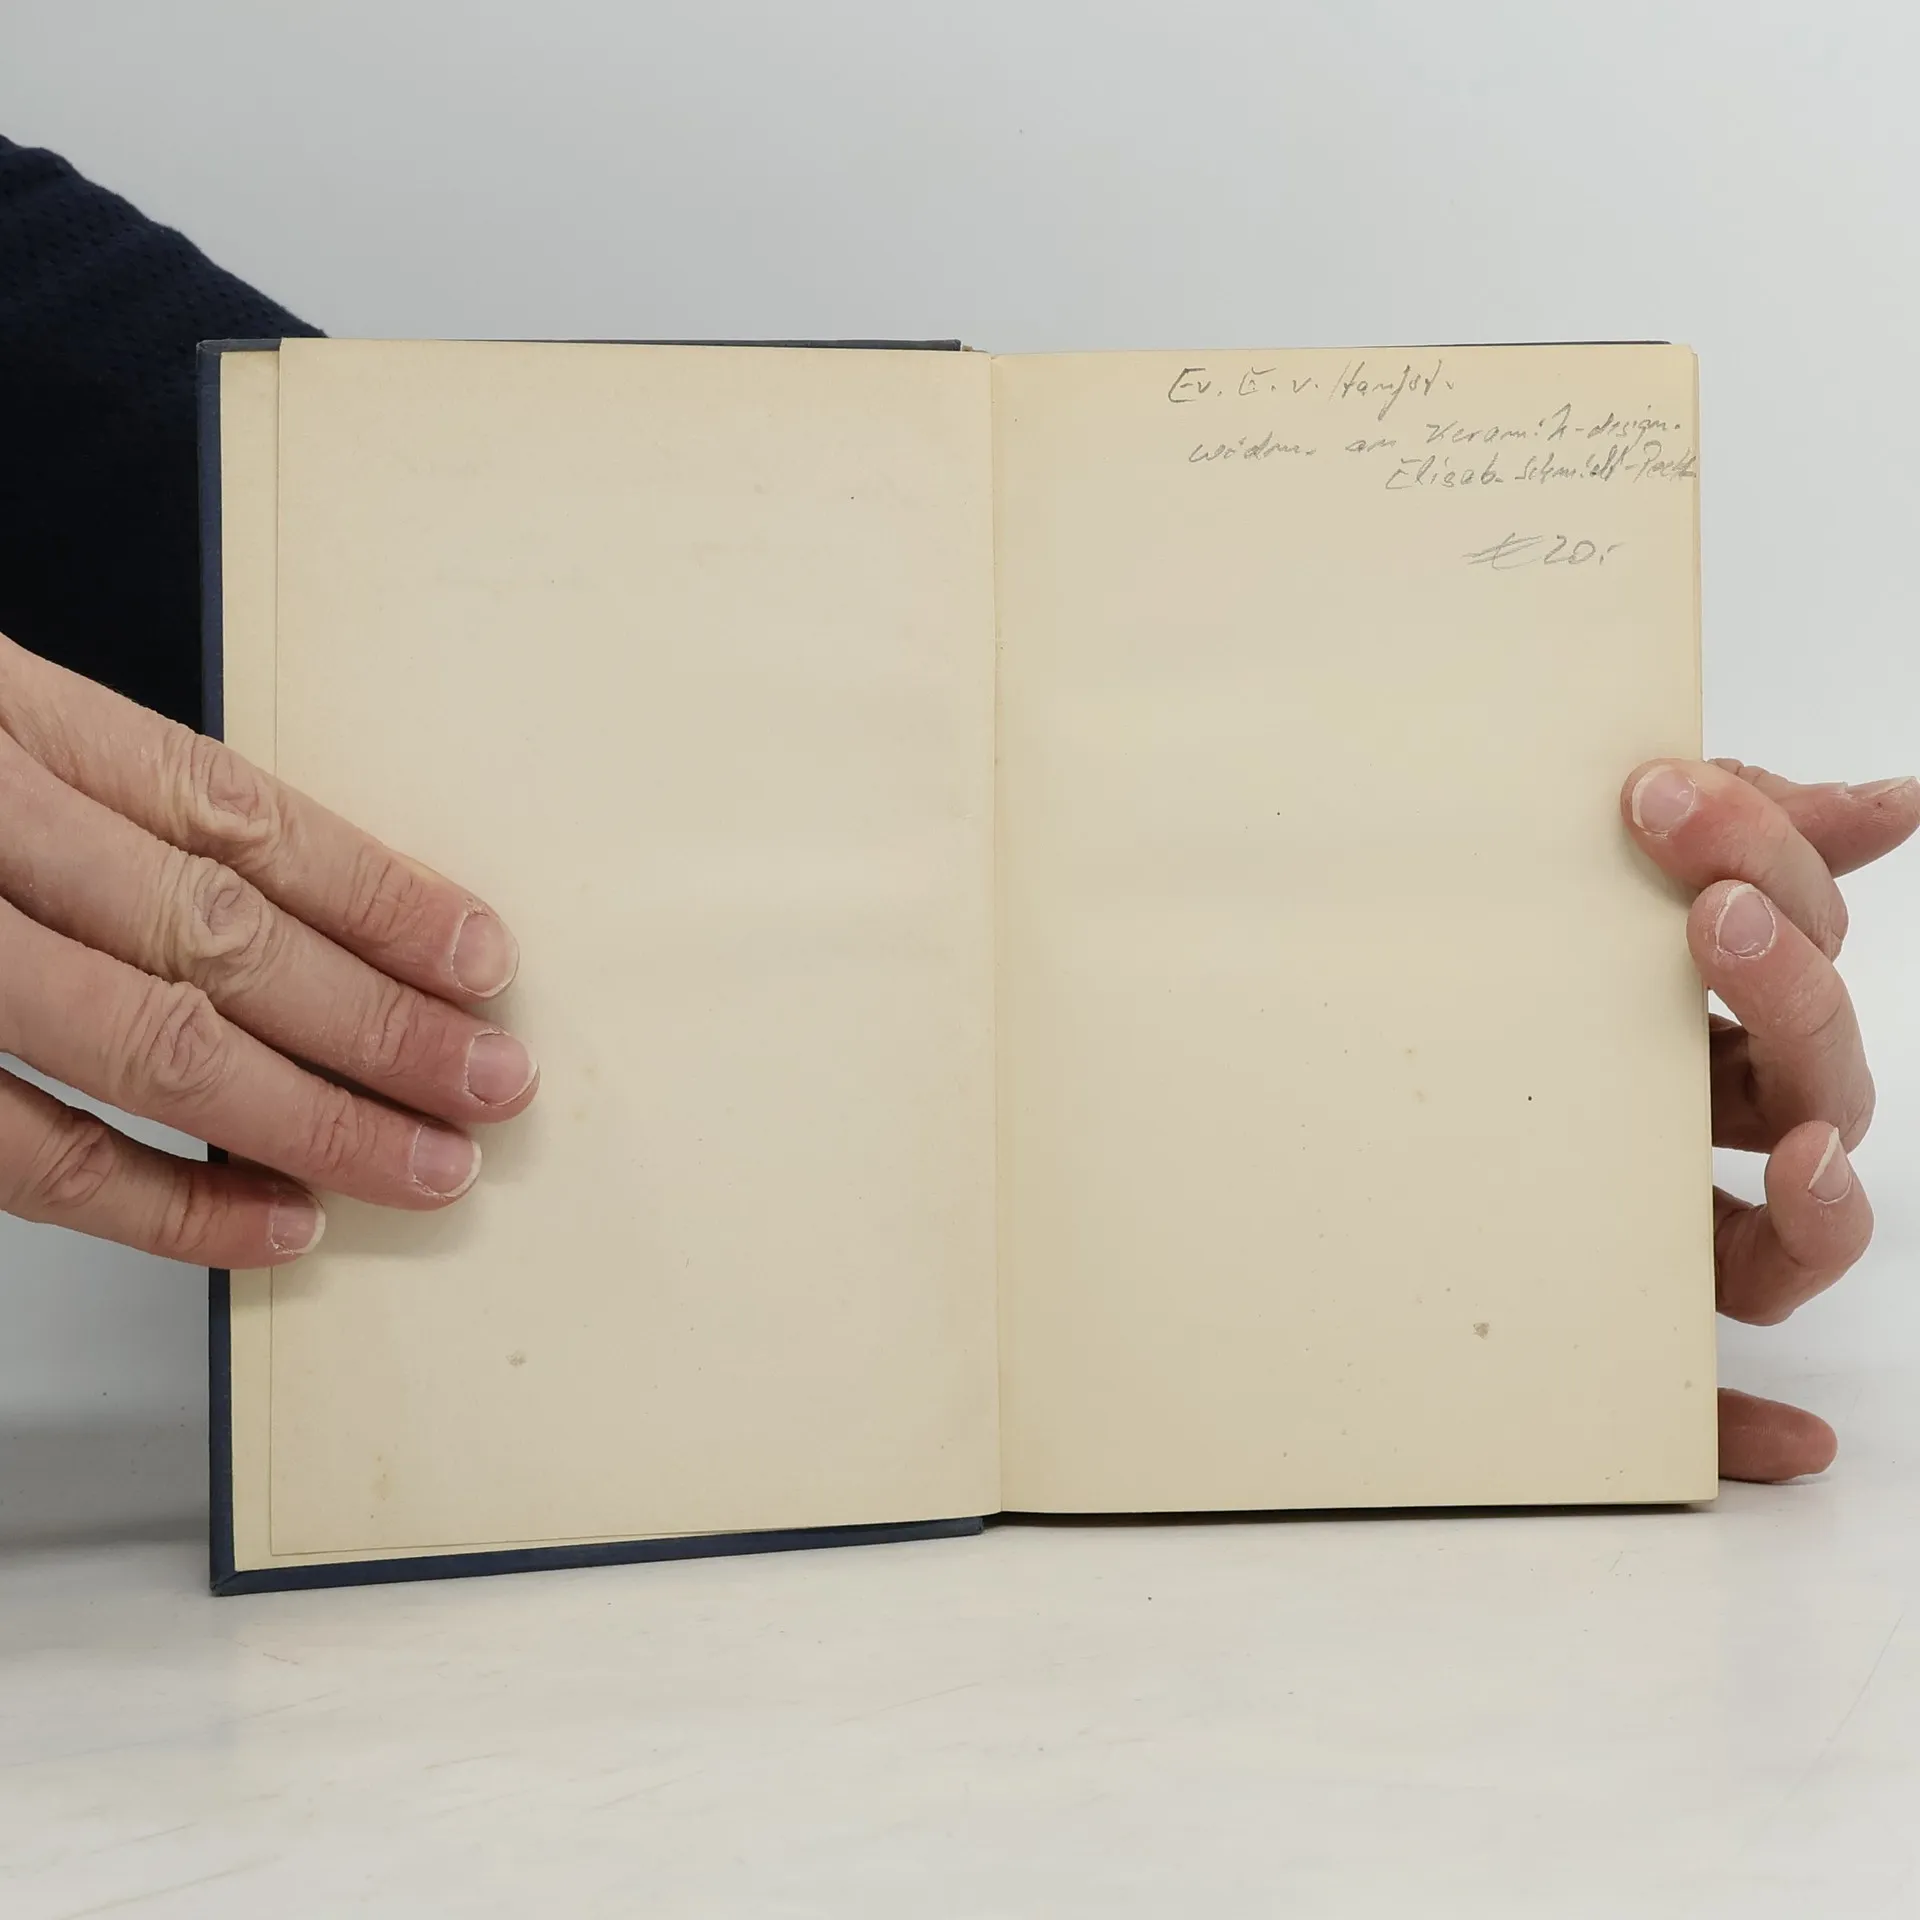 Ev. E. v. Hanfst.
widm. an Keramik-design.
Elisab. Schmidt-Pecht
€ 20.-